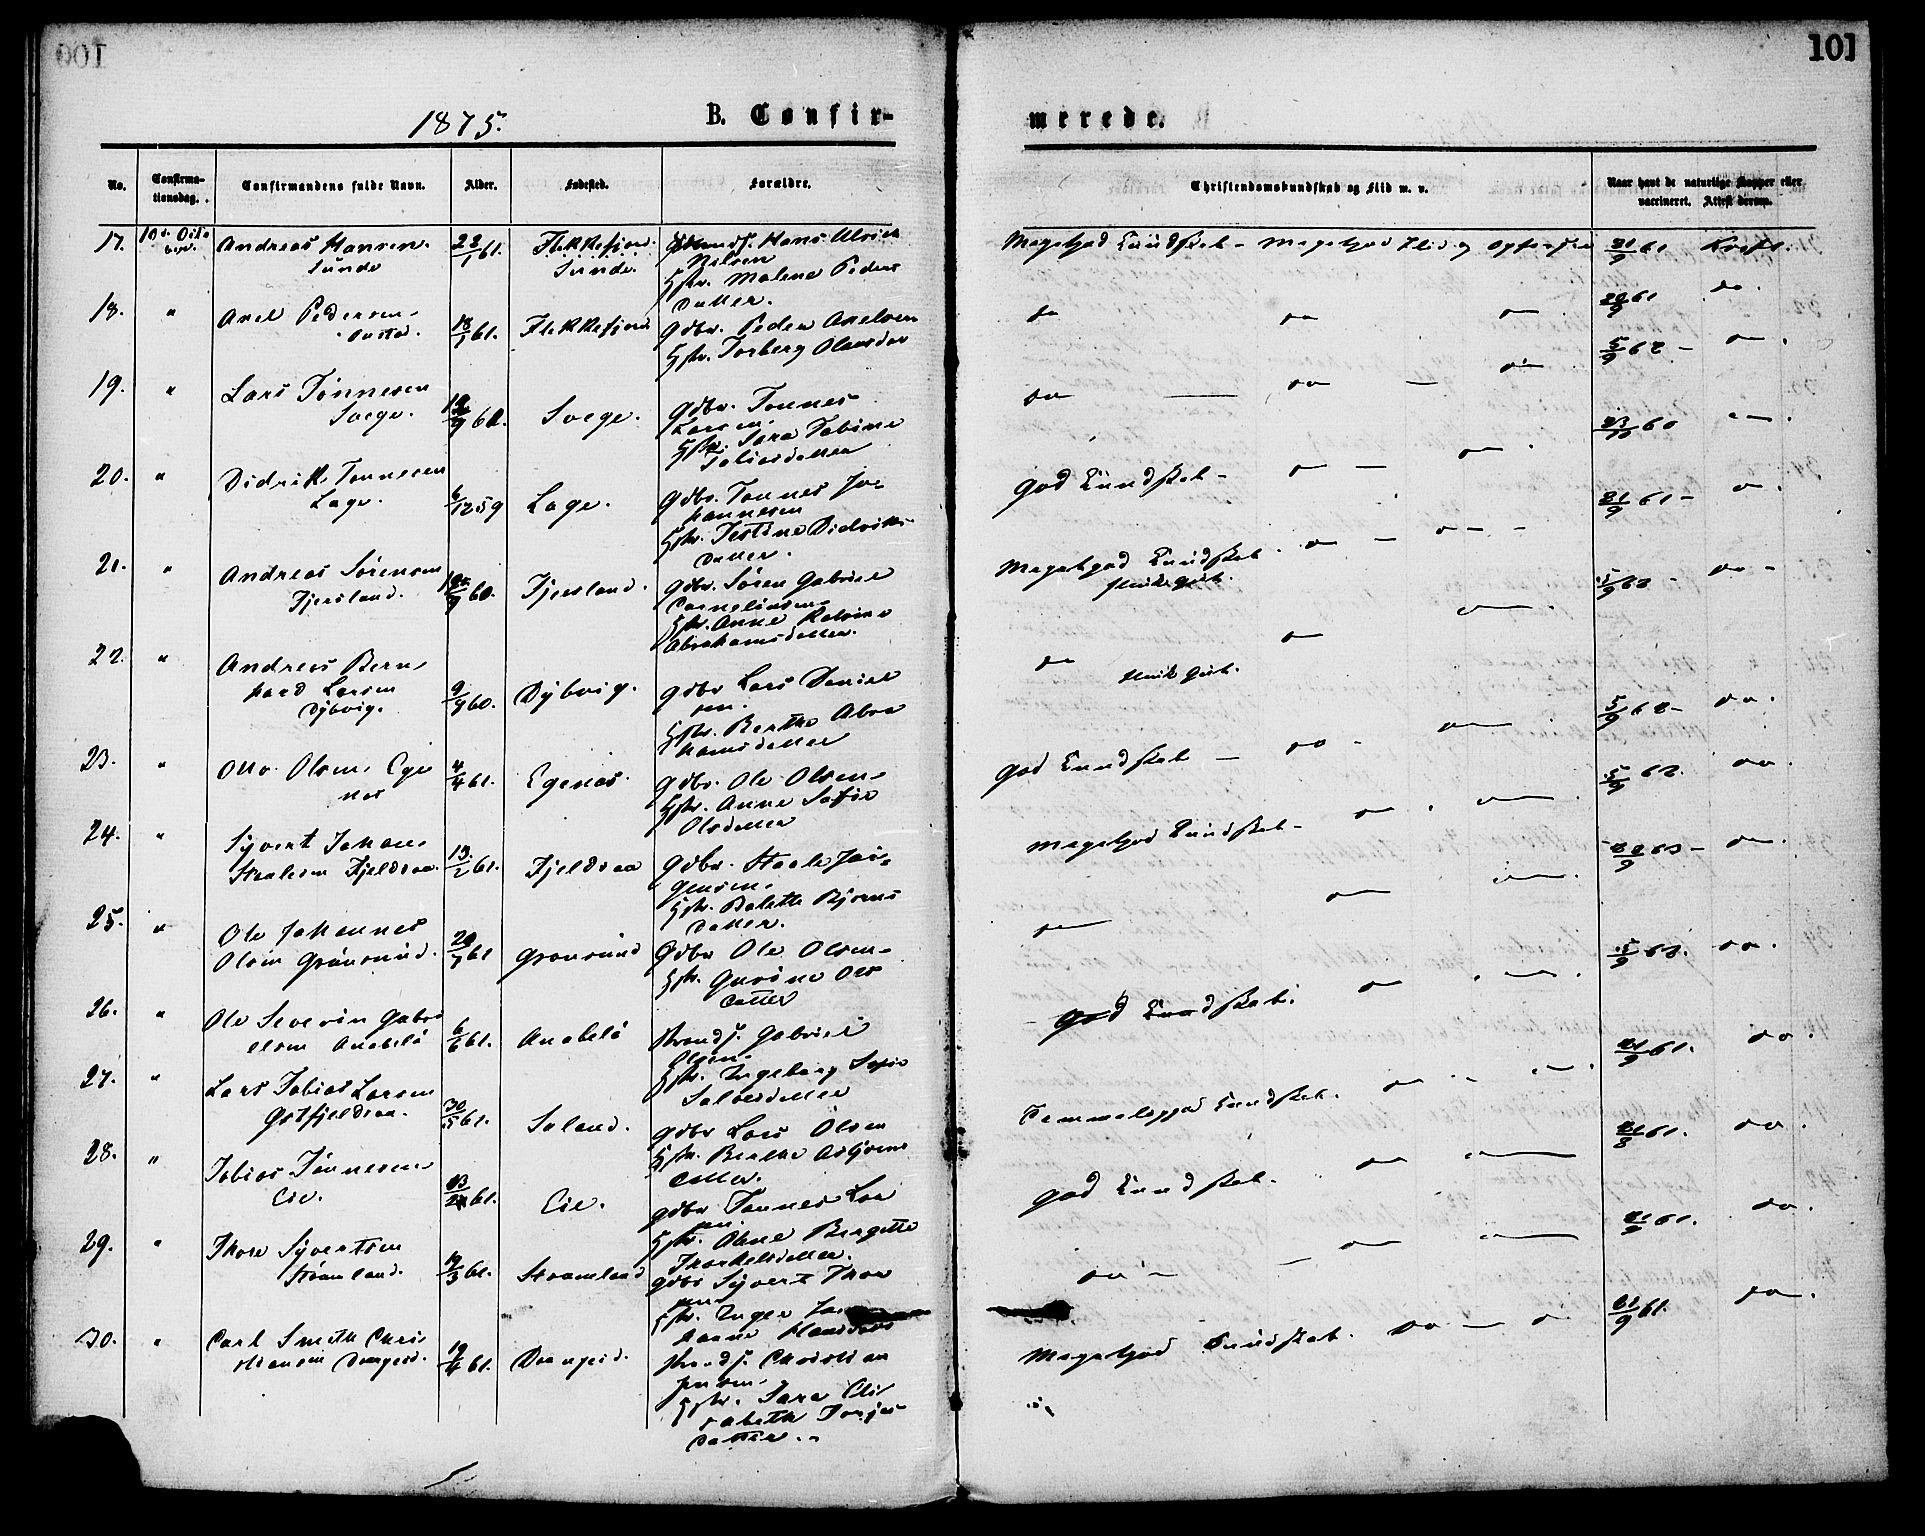 101
1875.
B. Confir-
merede.
No.
Confirma-
tionsdag.
Confirmandens fulde Navn.
Alder.
Fødested.
Forældre.
Christendomskundskab og Flid m. v.
Naar havt de naturlige Kopper eller
vaccineret. Attest derom.
17.
Andreas Hansen
Sunde
23/1 61.
Flekkefjord.
Sunde.
Hans Ulrich
Nielsen
Hstr. Malene Peders
datter.
Megetgod Kundskab - Megetgod Flid og Opførsel
21/9 61
18.
"
Axel Pedersen
18/1 61.
Flekkefjord
Gdbr. Peder Axelsen
Hstr. Torborg Olausdat
do
do
do
do.
19.
"
Lars Tønnesen
Svege.
60.
Svege.
Gdbr. Tønnes
Larsen.
Hstr. Sara Tobine
Tobiasdatter
do
do
do
5/9 62 -
do.
20.
"
Didrik Tønnesen
Lage.
6/12 59
Lage.
Gdbr. Tønnes Jo-
hannesen
Hstr. Justine Didriks
datter.
God Kundskab -
do
do
60
21.
"
Andreas Sørensen
Fjersland.
60.
Fjersland.
Gdbr. Søren Gabriel
Corneliusen
Hstr. Anne
Abrahamsdatter.
Megetgod Kundskab
do
do
21/9 61 -
do.
22.
"
Andreas Bern-
hard Larsen
Dybvig.
9/9 60.
Dybvig.
Gdbr. Lars Daniel
sen.
Hstr. Berthe Abra
hamsdatter
do
do
do
do -
23.
"
Otto Olsen Ege
nes
4/4 61.
Egenes.
Gdbr. Ole Olsen
Hstr. Anne Sofie
Olsdatter
God Kundskab -
do -
do
5/9 62 -
do.
24.
"
Syvert Johan
Staalesen Fjeldsaa.
13/2 61.
Fjeldsaa
Gdbr. Staale Jør-
gensen.
Hstr. Bolette Bjørns
datter.
Megetgod Kundskab -
do
do
5/9 62.
do.
25.
"
Ole Johannes
Olsen Grønsund.
61
Grønsund
Gdbr Ole Olsen
Hstr. Gurine Ols
datter
do
do
do
do.
26.
"
Ole Severin Gabri
elsen Anabelø
6/6 61.
Anabelø
Strands. Gabriel
Olsen.
Hstr. Ingeborg Sofie
Salvesdatter
God Kundskab.
do
do
5/9 62.
do.
27.
"
Lars Tobias Larsen
Østfjeldsaa.
30/5 61.
Soland.
Gdbr Lars Olsen
Hstr. Berthe Asbjørns
datter.
Temmeliggod Kundskab.
do
do
21/9 61.
do.
28.
"
Tobias Tønnesen
Eie.
61.
Eie.
Gdbr Tønnes Lar
sen.
Hstr. Anne Bergitte
Thorkelsdatter.
God Kundskab.
do
do
21/8 61.
do.
29.
"
Thore Syvertsen
Strømland.
12/3 61.
Strømland
Gdbr Syvert Thor
sen
Hstr. Inger Jo
hanne Hansdatt
do
do
do
21/9 61.
do.
30.
"
Carl Smith Chris
tiansen Drangeid.
19/4 61.
Drangeid.
Strands. Christian
Jensen.
Hstr. Sara Eli
sabeth Torjus
datter.
Megetgod Kundskab.
do
do
21/9 61.
do.